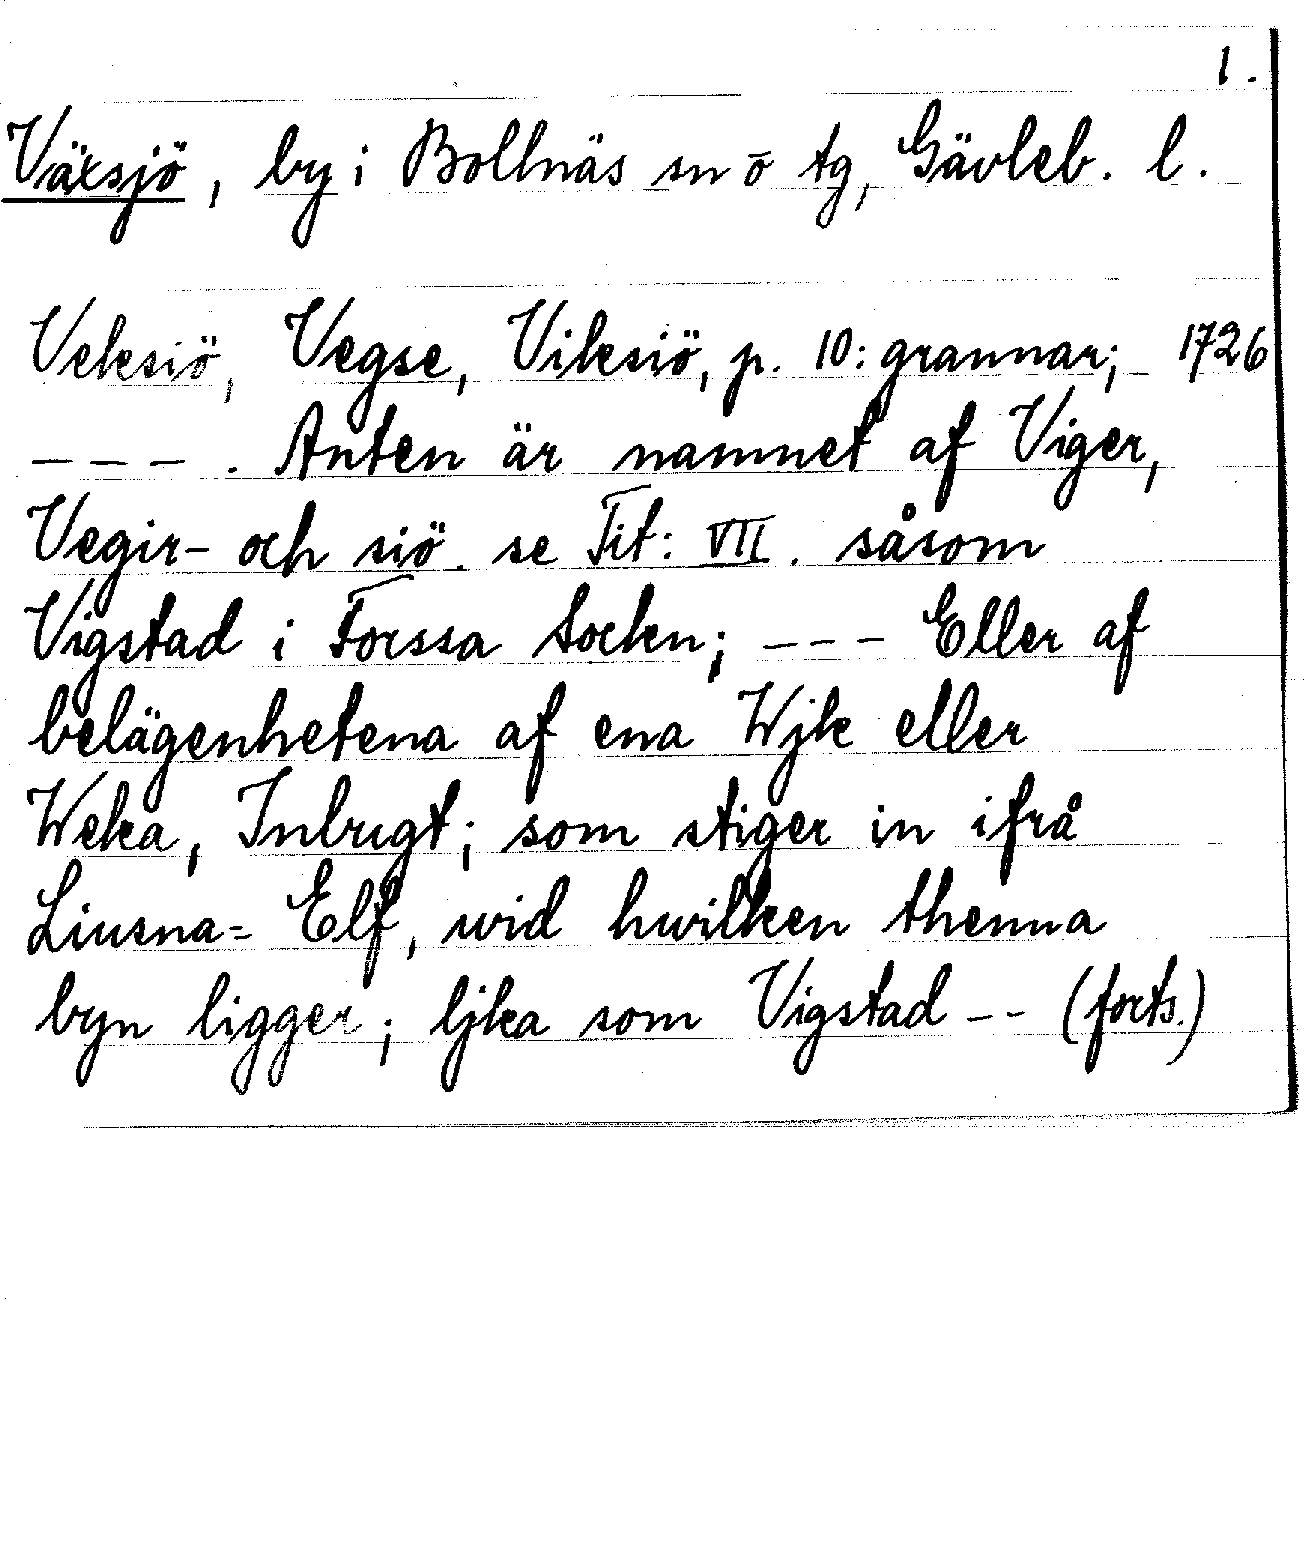 1.
Växsjö, by i Bollnäs sn o tg, Gävleb. l.
Veksiö, Vegse, Viksiö, p. 10: grannar; 1726
--- . Anten är namnet af Viger,
Vegir- och siö. se Tit: VII. såsom
Vigstad i Forssa Socken; --- Eller af
belägenhetena af ena Wjk eller
Weka, Inbugt; som stiger in ifrå
Liusna= Elf, wid hwilken thenna
byn ligger; ljka som Vigstad -- (forts.)